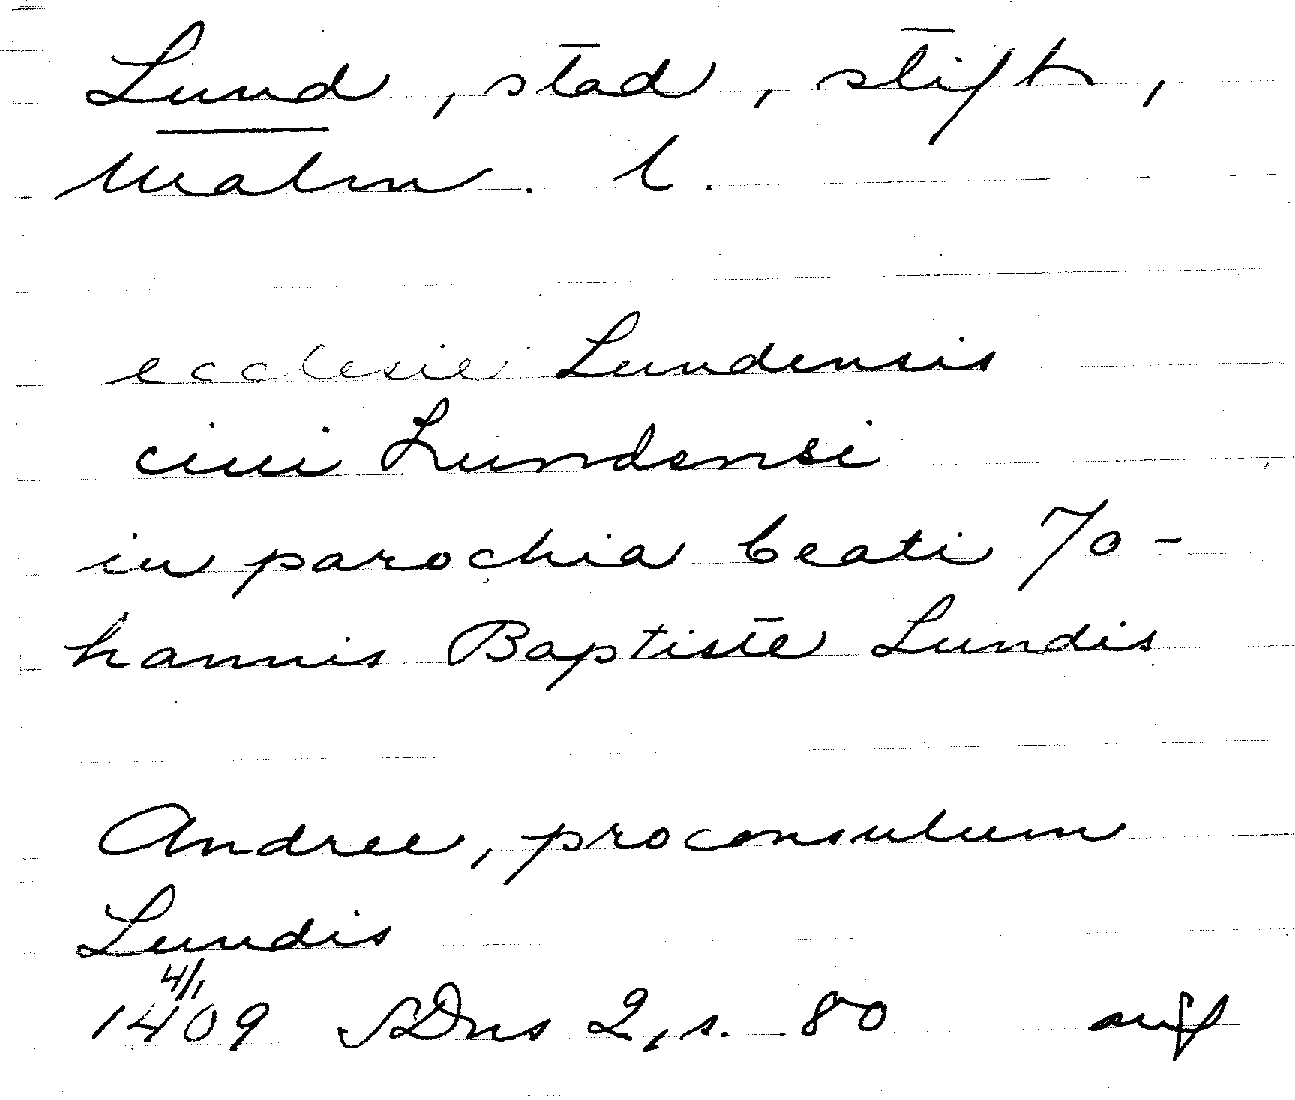 Lund, stad, stift,
Malm. l.
ecclesie Lundensis
ciui Lundensi
in parochia beati Jo-
hannis Baptiste Lundis
Andree, proconsulum
Lundis
4/1
1409 SDns 2, s. 80